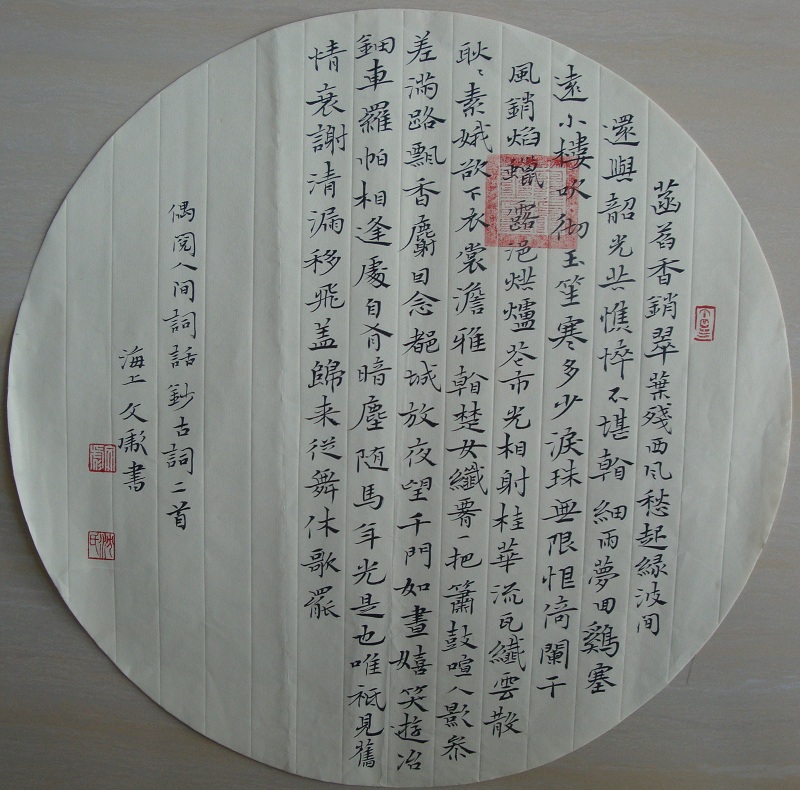 菡萏香銷翠葉殘西风愁起緑波间
還與韶光共憔悴不堪看細雨夢回鷄塞
遠小樓吹彻玉笙寒多少淚珠無限恨倚闌干
風銷焰蠟露浥烘爐花市光相射桂華流瓦纖雲散
耿々素娥欲下衣裳澹雅看楚女纖腰一把簫鼓喧人影參
差滿路飄香麝因念都城放夜望千門如晝嬉笑遊冶
鈿車羅帕相逢處自有暗塵随馬年光是也唯衹見舊
情衰謝清漏移飛盖歸来從舞休歌罷
偶閲人间詞話鈔古詞二首
海上文書